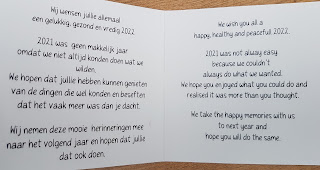 Wij wensen jullie allemaal
een gelukkig, gezond en vredig 2022.
2021 was geen makkelijk jaar
omdat we niet altijd konden doen wat we
wilden.
We hopen dat jullie hebben kunnen genieten
van de dingen die wel konden en beseften
dat het vaak meer was dan je dacht.
Wij nemen deze mooie herinneringen mee
naar het volgend jaar en hopen dat jullie
dat ook doen.
We wish you all a
happy, healthy and peaceful 2022.
2021 was not alway easy
because we couldn't
always do what we wanted.
We hope you enjoyed what you could do and
realised it was more than you thought.
We take the happy memories with us
to next year and
hope you will do the same.